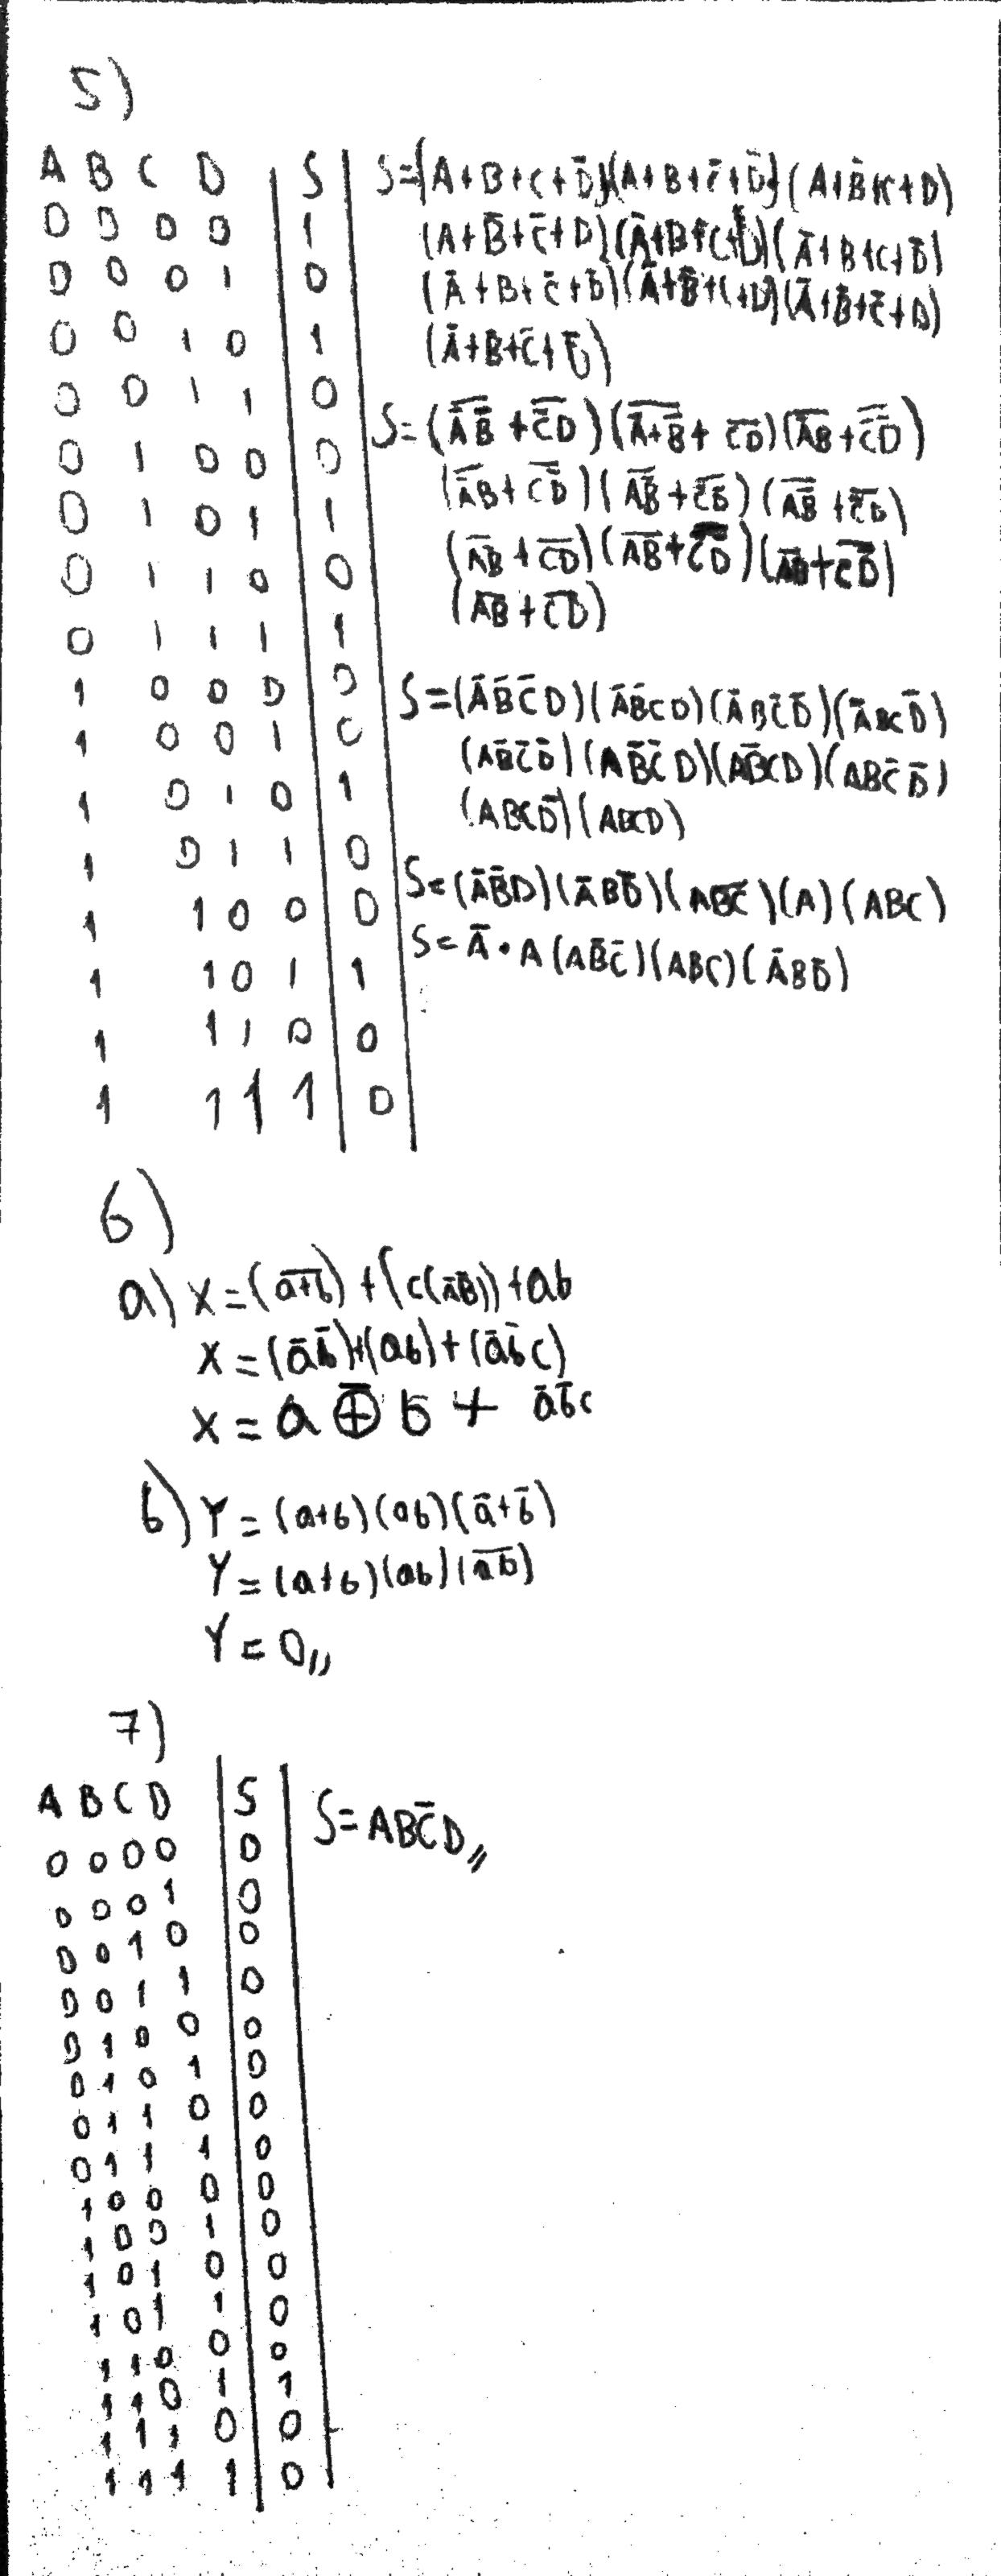 5)
A B C D | S |
0 0 0 0 | 1
0 0 0 1 | 0
0 0 1 0 | 1
0 0 1 1 | 0
0 1 0 0 | 0
0 1 0 1 | 1
0 1 1 0 | 0
0 1 1 1 | 1
1 0 0 0 | 0
1 0 0 1 | 0
1 0 1 0 | 1
1 0 1 1 | 0
1 1 0 0 | 0
1 1 0 1 | 1
1 1 1 0 | 0
1 1 1 1 | 0
S=(A+B+C+D̅)(A+B+C̅+D̅)(A+B̅+C+D)
(A+B̅+C̅+D)(A̅+B+C+D)(A̅+B+C+D̅)
(A̅+B+C̅+D̅)(A̅+B̅+C+D)(A̅+B̅+C̅+D)
(A̅+B̅+C̅+D̅)
S=(A̅B̅C̅D)(A̅B̅CD)(A̅BC̅D̅)(A̅BCD̅)
(AB̅C̅D̅)(AB̅C̅D)(AB̅CD)(ABC̅D̅)
(ABCD̅)(ABCD)
S=(A̅B̅D)(A̅BD̅)(AB̅C̅)(A)(ABC)
S=A̅·A(AB̅C̅)(ABC)(A̅BD̅)
6)
a) X=(a̅+̅b̅)+(C(A̅B̅))+ab
X=(a̅b̅)+(ab)+(a̅b̅c)
X=a ⊕̅ b + a̅b̅c
b) Y=(a+b)(ab)(a̅+b̅)
Y=(a+b)(ab)(a̅b̅)
Y=0,,
7)
A B C D | S |
0 0 0 0 | 0
0 0 0 1 | 0
0 0 1 0 | 0
0 0 1 1 | 0
0 1 0 0 | 0
0 1 0 1 | 0
0 1 1 0 | 0
0 1 1 1 | 0
1 0 0 0 | 0
1 0 0 1 | 0
1 0 1 0 | 0
1 0 1 1 | 0
1 1 0 0 | 0
1 1 0 1 | 1
1 1 1 0 | 0
1 1 1 1 | 0
S=ABC̅D,,